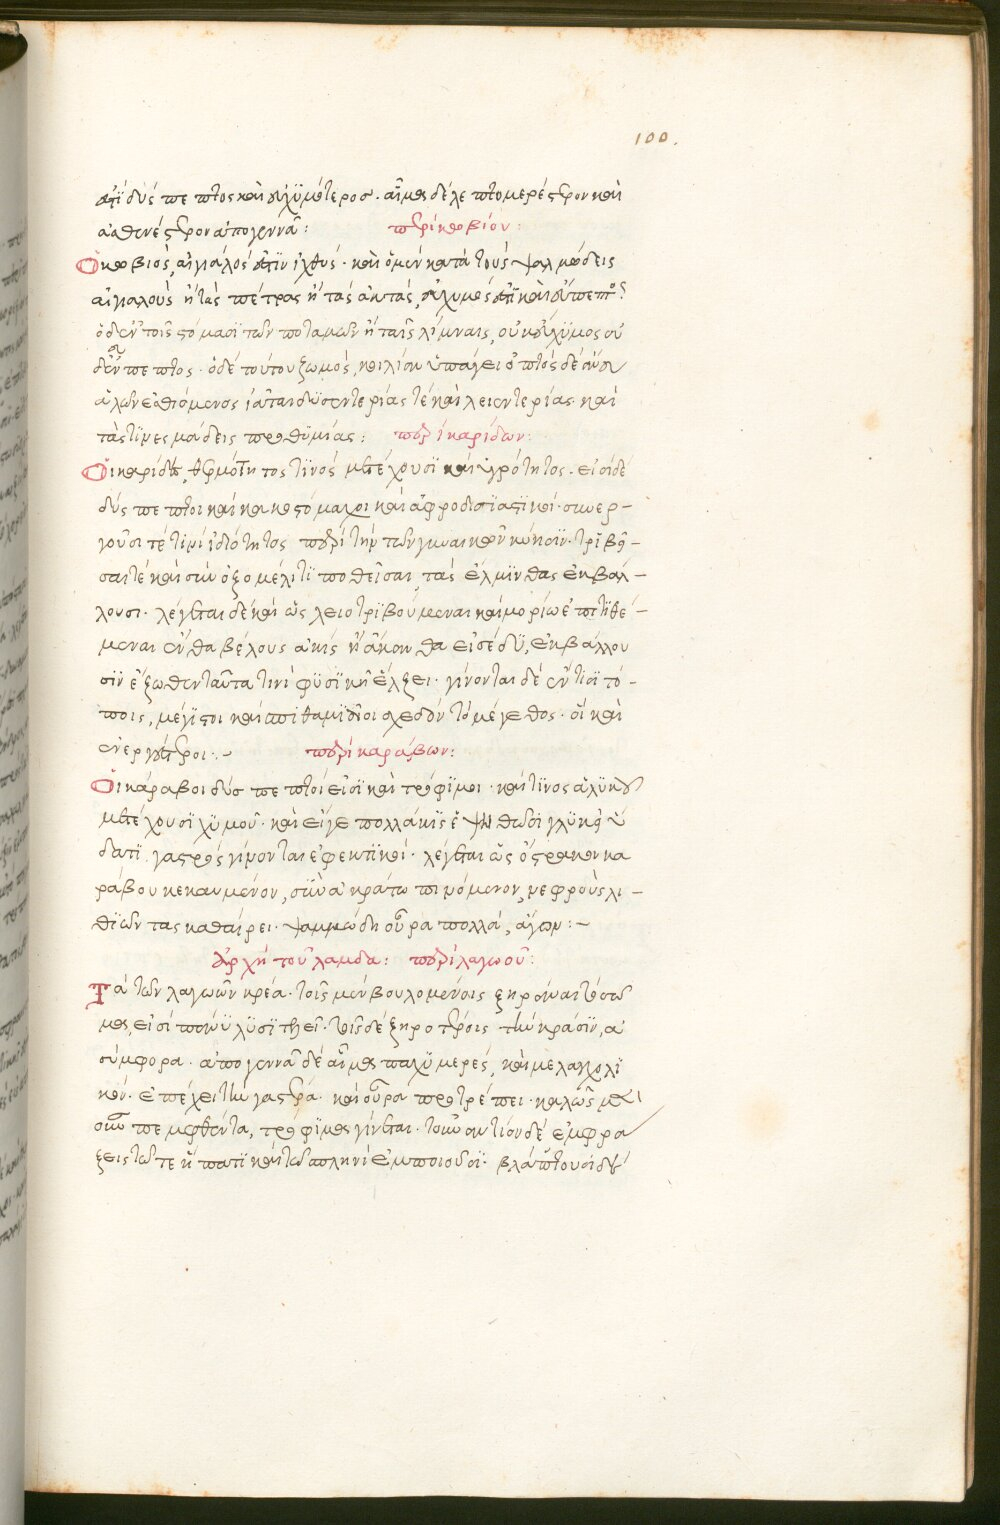 100.
ἐστὶ δύσπεπτος καὶ εὐχυμότερος. αἷμα δὲ λεπτομερέστερον καὶ
ἀσθενέστερον ἀπογεννᾶ: περὶ κωβιόν:
Ὁ κωβιὸς, αἰγιαλός ἐστιν ἰχθύς. καὶ ὁ μὲν κατὰ τοὺς ψαμμώδεις
αἰγιαλοὺς ἢ τὰς πέτρας ἢ τὰς ἀκτάς, εὔχυμός ἐστι καὶ εὔπεπτος
ὁ δ' ἐν τοῖς στόμασι τῶν ποταμῶν ἢ ταῖς λίμναις, οὐκ εὔχυμος οὐ
δ' εὔπεπτος. ὁ δὲ τούτου ζωμὸς, κοιλίαν ὑπάγει ὀπτὸς δὲ ἄνευ
ἁλῶν ἐσθιόμενος ἰᾶται δυσεντερίας τὲ καὶ λειεντερίας καὶ
τὰς τινεσμώδεις προθυμίας: περὶ καρίδων:
Οἱ καρίδες, θερμότητος τινὸς μετέχουσι καὶ ὑγρότητος. εἰσὶ δὲ
δύσπεπτοι καὶ κακοστόμαχοι καὶ ἀφροδισιαστικοί. συνερ-
γοῦσι τὲ τινὶ ἰδιότητος περὶ τὴν τῶν γυναικῶν κύησιν. τριβεῖ-
σαι τὲ καὶ σὺν ὀξομέλιτι ποθεῖσαι, τὰς ἕλμινθας ἐκβάλ-
λουσι. λέγεται δὲ καὶ ὡς λειοτριβούμεναι καὶ μορίω ἐπιτιθέ-
μεναι ἔνθα βέλους ἀκὶς ἢ ἄκανθα εἰσέδυ, ἐκβάλλου
σιν ἔξωθεν ταῦτα τινὶ φυσικῆ ἕλξει. γίνονται δὲ ἔν τισι τό-
ποις, μέγισται καὶ σπιθαμιαῖοι σχεδὸν τὸ μέγεθος. οἳ καὶ
ἐνεργέστεροι.- περὶ καράβων:
Οἱ κάραβοι δύσπεπτοί εἰσι καὶ τρόφιμοι. καὶ τινος ἁλυκοῦ
μετέχουσι χυμοῦ. καὶ εἴγε πολλάκις ἑψηθῶσι γλυκεῖ ὕ
δατι γαστρὸς γίνονται ἐφεκτικοί. λέγεται ὡς ὄστρακον κα
ράβου κεκαυμένον, σὺν ἀκράτω πινόμενον, νεφροὺς λι-
θιῶντας καθαίρει. ψαμμώδη οὖρα πολλὰ, ἄγον:-
Ἀρχὴ τοῦ λάμδα: περὶ λαγωοῦ:
Τὰ τῶν λαγωῶν κρέα. τοῖς μὲν βουλομένοις ξηρᾶναι τὸ σῶ
μα, εἰσὶ πάνυ λυσιτελῆ. τοῖς δὲ ξηροτέροις τὴν κρᾶσιν, ἀ
σύμφορα. ἀπογεννᾶ δὲ αἷμα παχυμερές, καὶ μελαγχολι
κόν. ἐπέχει τὴν γαστέρα. καὶ οὖρα προτρέπει. καλῶς μέντοι
οὖν πεμφθέντα, τρόφιμα γίνεται. τοὐναντίον δὲ ἐμφρά
ξεις τῶ τε ἥπατι καὶ τῶ σπληνὶ ἐμποιοῦσι. βλάπτουσι δὲ